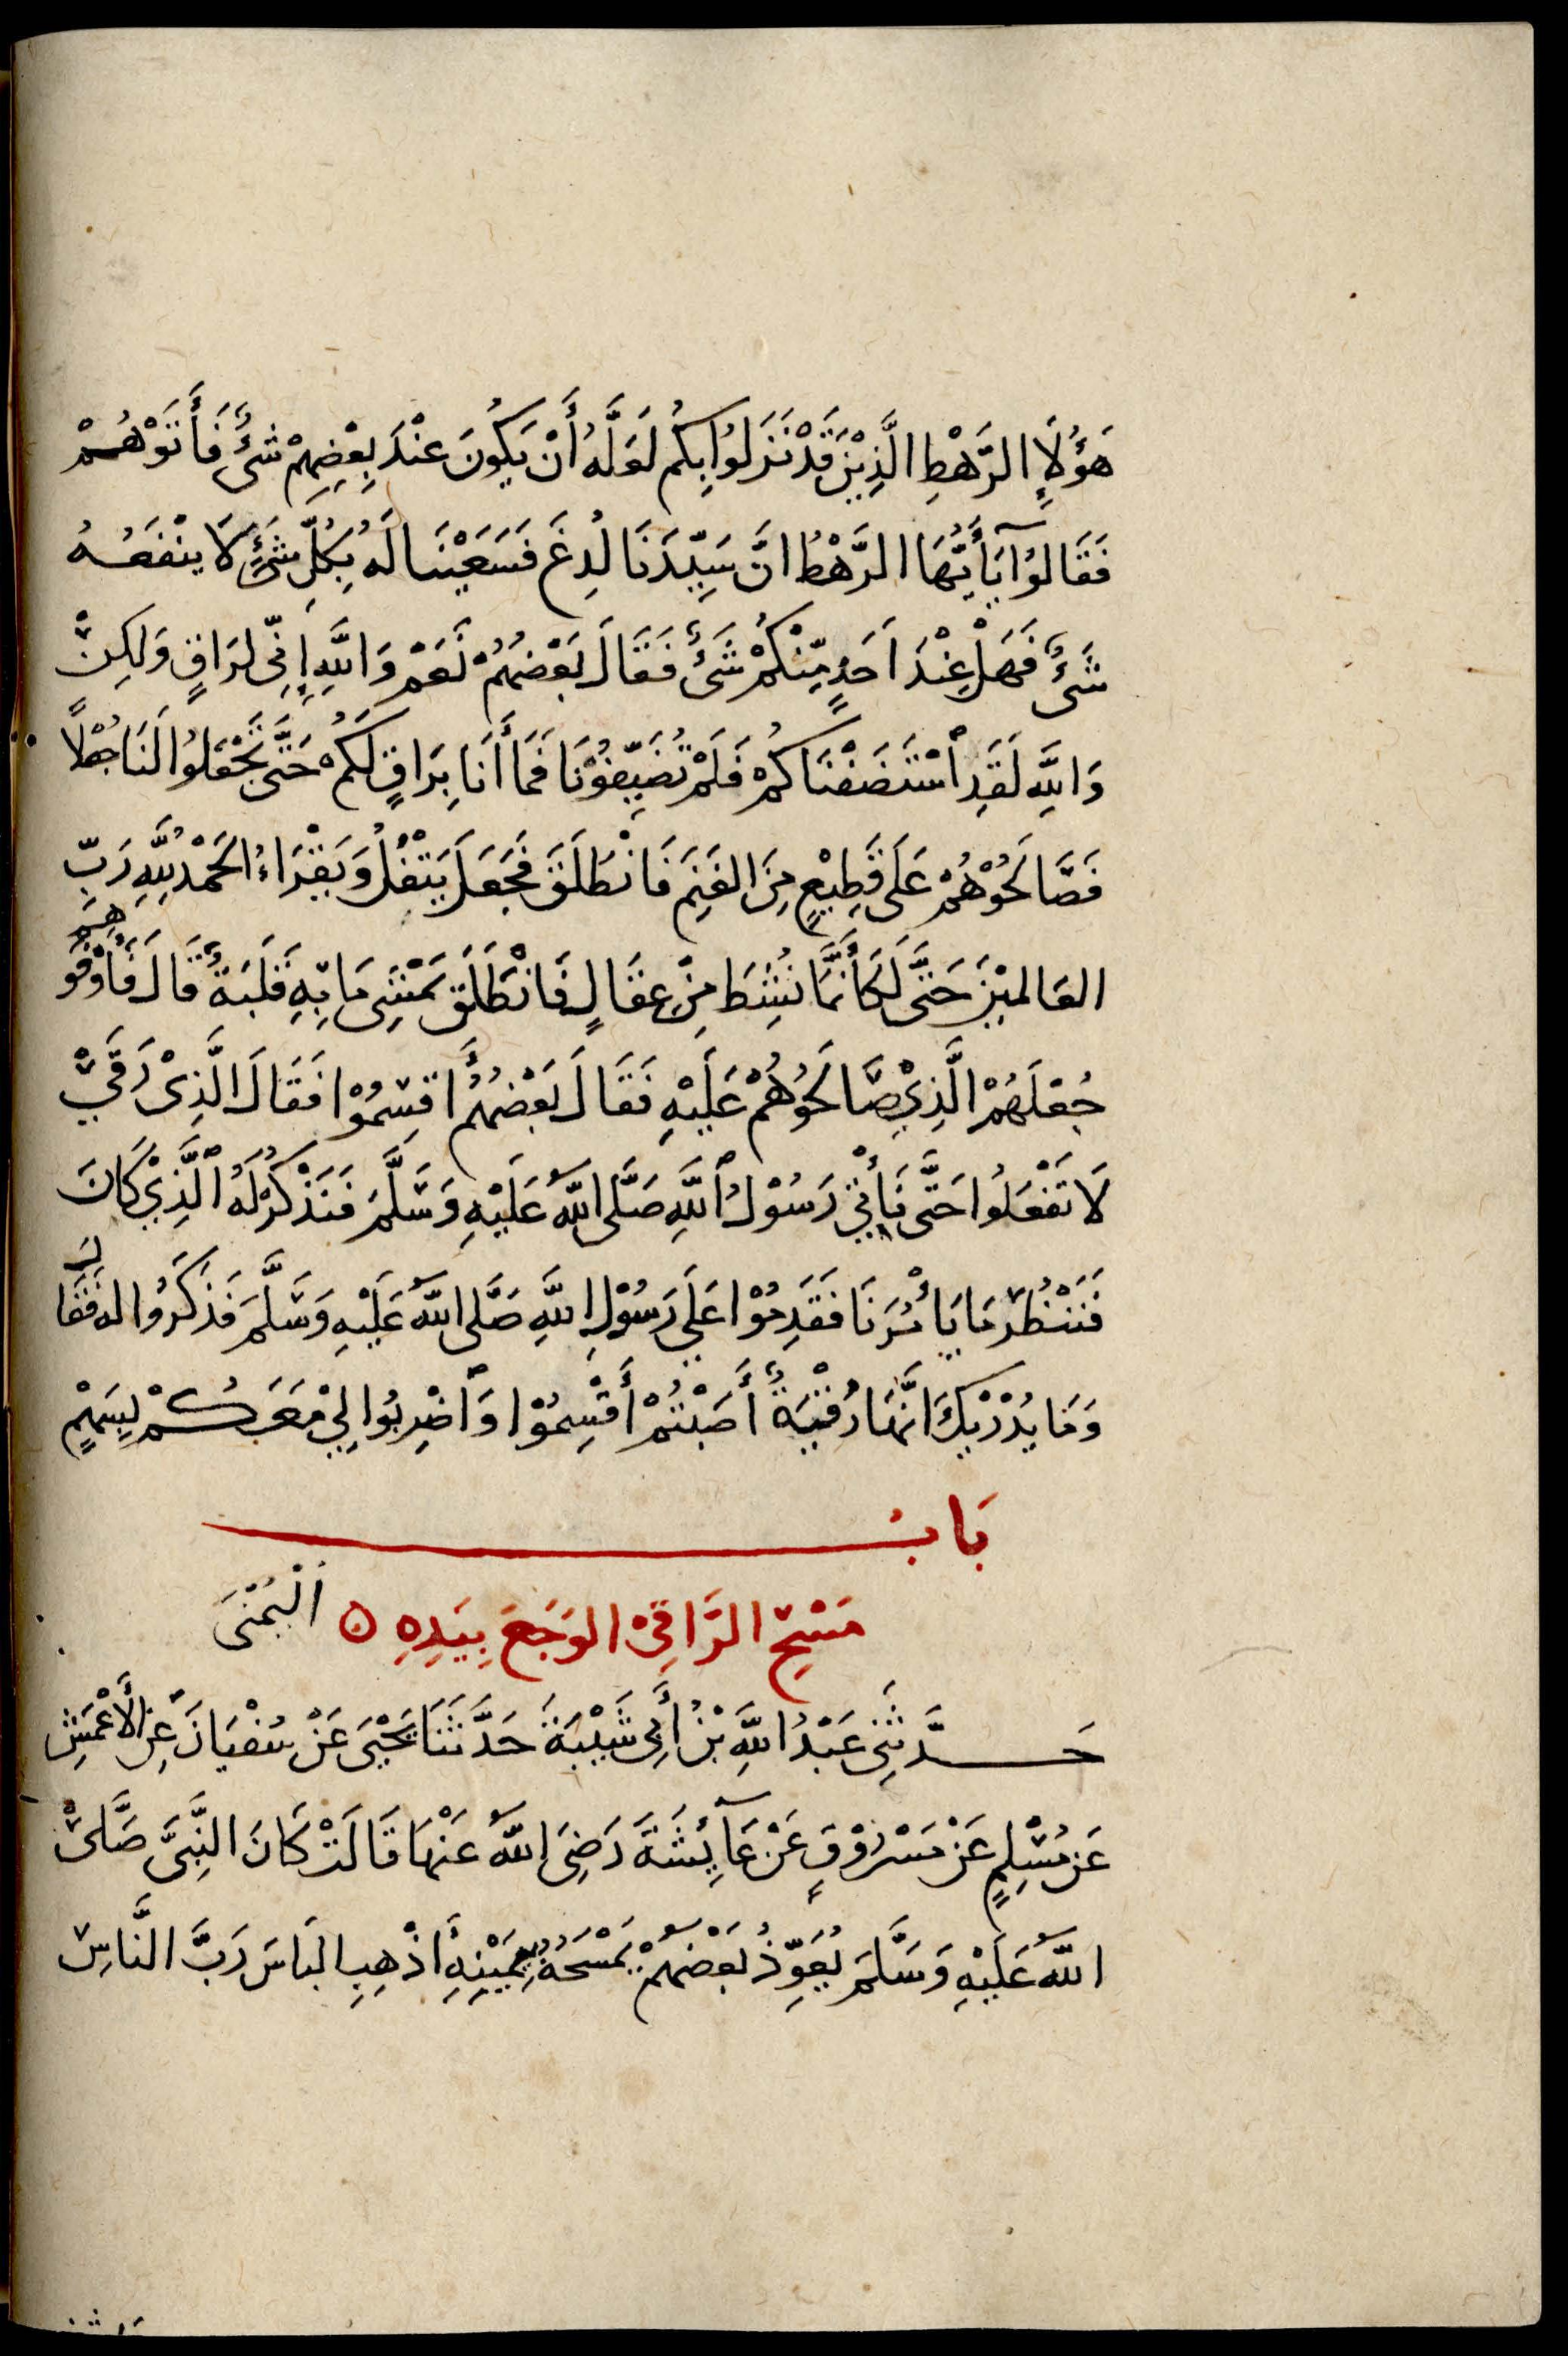 هَؤُلَاءِ الرَّهْطِ الَّذِيْنَ قَدْ نَزَلُوا بِكُمْ لَعَلَّهُ أَنْ يَكُونَ عِنْدَ بَعْضِهِمْ شَيْءٌ فَأَتَوْهُمْ
فَقَالُوا يَآأَيُّهَا الرَّهْطُ اِنَّ سَيِّدَنَا لُدِغَ فَسَعَيْنَا لَهُ بِكُلِّ شَيْءٍ لَا يَنْفَعُهُ
شَيْءٌ فَهَلْ عِنْدَ اَحَدٍ مِّنْكُمْ شَيْءٌ فَقَالَ بَعْضُهُمْ نَعَمْ وَاللَّهِ إِنِّي لَرَاقٍ وَلَكِنْ
وَاللَّهِ لَقَدِ اسْتَضَفْنَاكُمْ فَلَمْ تُضَيِّفُوْنَا فَمَا أَنَا بِرَاقٍ لَكُمْ حَتَّى تَجْعَلُوا لَنَا جُعْلًا
فَصَالَحُوْهُمْ عَلَى قَطِيْعٍ مِنَ الغَنَمِ فَانْطَلَقَ فَجَعَلَ يَتْفُلُ وَيَقْرَاءُ الحَمْدُ لِلَّهِ رَبِّ
العَالَمِيْنَ حَتَّى لَكَأَنَّمَا نُشِطَ مِنْ عِقَالٍ فَانْطَلَقَ يَمْشِي مَا بِهِ قَلَبَةٌ قَالَ فَأَوْفَوْهُمْ
جُعْلَهُمْ الَّذِيْ صَالَحُوْهُمْ عَلَيْهِ فَقَالَ بَعْضُهُمُ اقْسِمُوْا فَقَالَ الَّذِيْ رَقَى
لَا تَفْعَلُوا حَتَّى نَأْتِيَ رَسُوْلَ اللَّهِ صَلَّى اللَّهُ عَلَيْهِ وَسَلَّمَ فَنَذْكُرْ لَهُ الَّذِيْ كَانَ
فَنَنْظُرَ مَا يَأْمُرُنَا فَقَدِمُوْا عَلَى رَسُوْلِ اللَّهِ صَلَّى اللَّهُ عَلَيْهِ وَسَلَّمَ فَذَكَرُوا لَهُ فَقَالَ
وَمَا يُدْرِيْكَ اَنَّهَا رُقْيَةٌ أَصَبْتُمْ أَقْسِمُوْا وَاضْرِبُوا لِيْ مَعَكُمْ بِسَهْمٍ
بَابُ
مَسْحِ الرَّاقِيْ الوَجَعَ بِيَدِهِ اليُمْنَى
حَدَّثَنِي عَبْدُ اللَّهِ بْنُ أَبِي شَيْبَةَ حَدَّثَنَا يَحْيَى عَنْ سُفْيَانَ عَنِ الْأَعْمَشِ
عَنْ مُسْلِمٍ عَنْ مَسْرُوْقٍ عَنْ عَآئِشَةَ رَضِيَ اللَّهُ عَنْهَا قَالَتْ كَانَ النَّبِيُّ صَلَّى
اللَّهُ عَلَيْهِ وَسَلَّمَ يُعَوِّذُ بَعْضَهُمْ يَمْسَحُهُ بِيَمِيْنِهِ أَذْهِبِ البَاسَ رَبَّ النَّاسِ